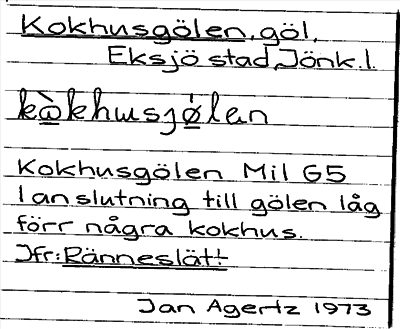 Kokhusgölen, göl,
Eksjö stad, Jönk.l.
kòkhusjǿlan
Kokhusgölen Mil G5
I anslutning till gölen låg
förr några kokhus.
Jfr: Ränneslätt
Jan Agertz 1973